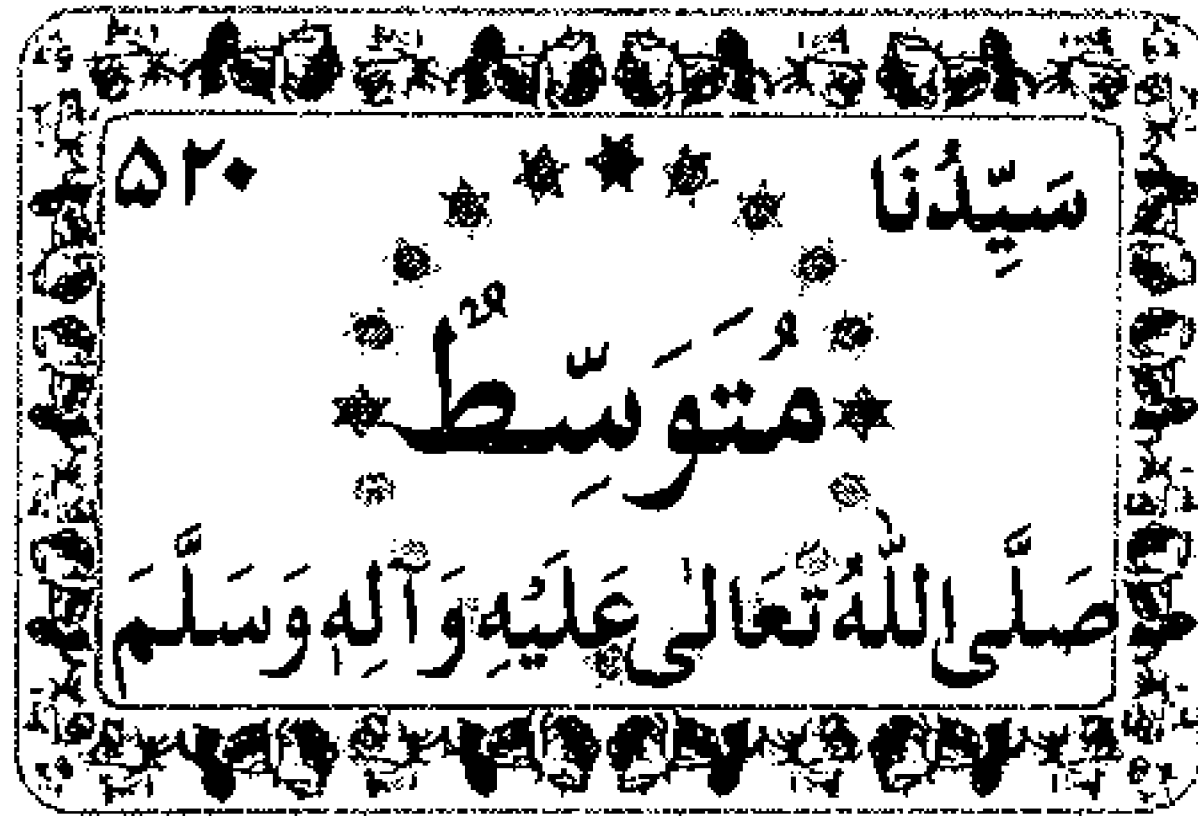 سَيِّدُنَا ۵۲۰
مُتَوَسِّطٌ
صَلَّى اللّٰهُ تَعَالىٰ عَلَيْهِ وَآلِهٖ وَسَلَّمَ